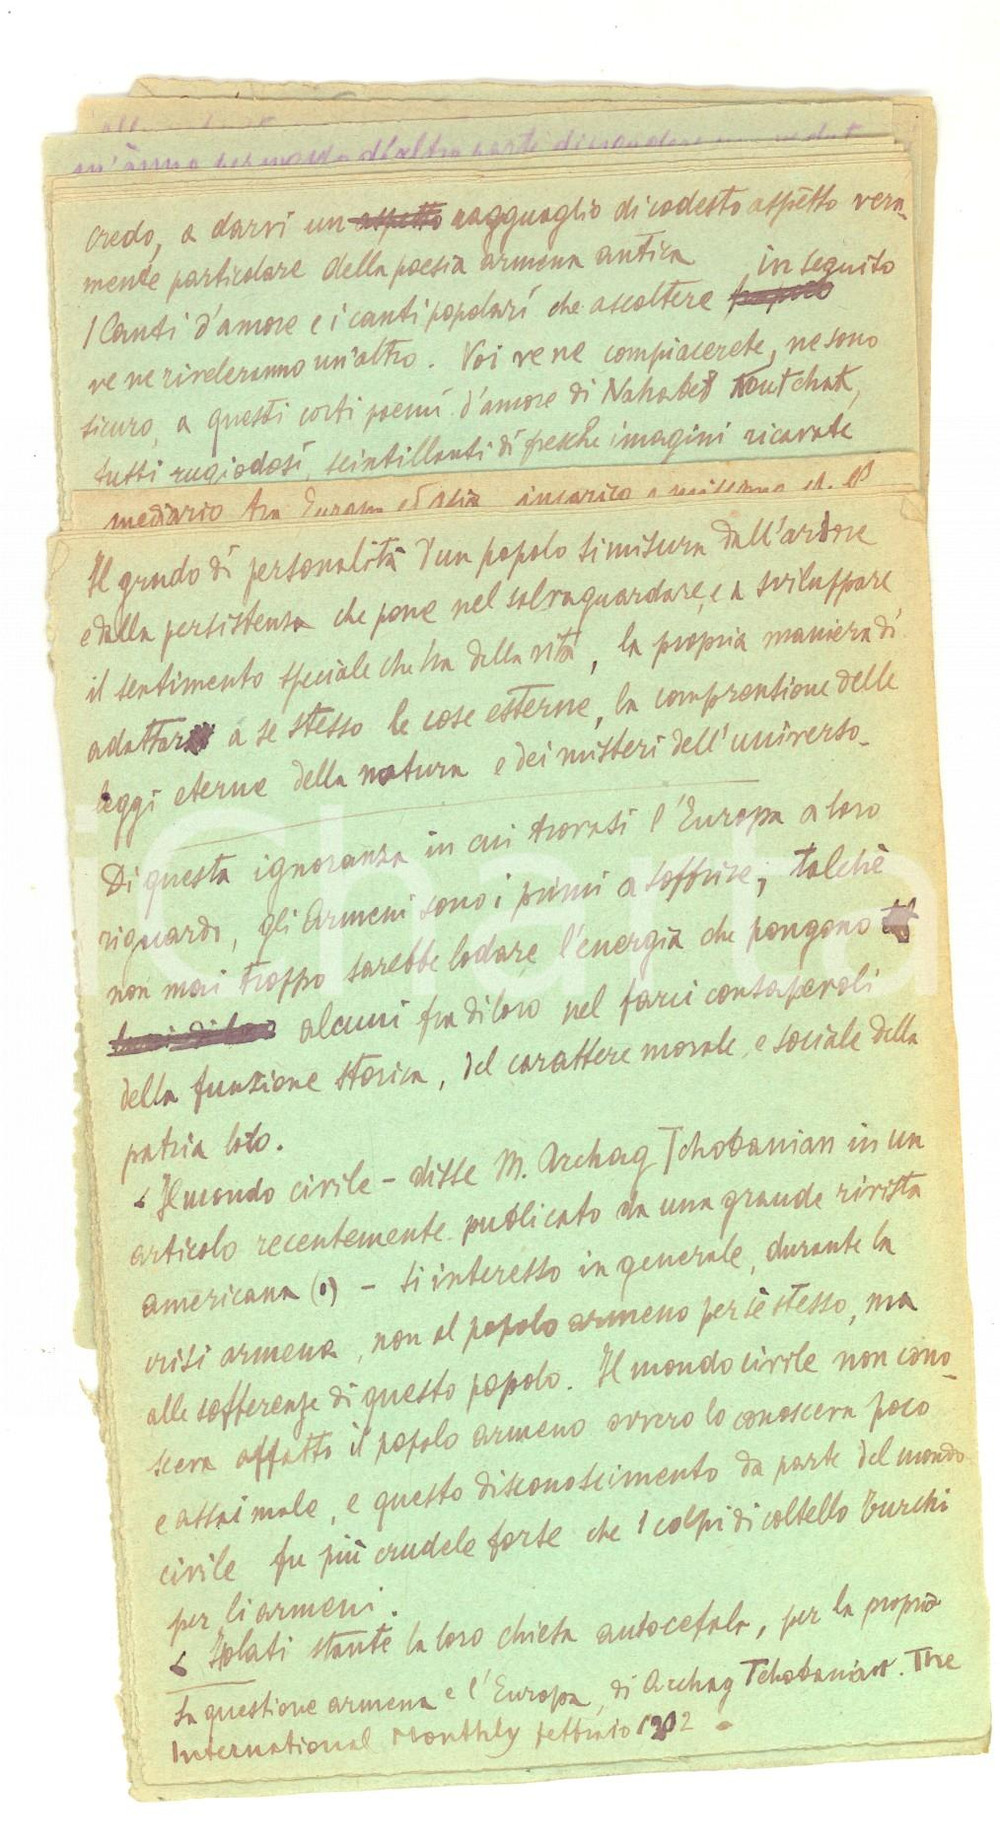 m'ànno per modo d'altra parte di
credo, a darvi un aspetto ragguaglio di codesto aspetto vera-
mente particolare della poesia armena antica
in seguito
I Canti d'amore e i canti popolari che ascoltere
ve ne riveleranno un'altro. Voi ve ne compiacerete, ne sono
sicuro, a questi corti poemi d'amore di Nahabed Koutchak,
tutti rugiadosi, scintillanti di fresche imagini ricavate
mediario tra Europa ed Asia
Il grado di personalità d'un popolo si misura dall'ardore
e dalla persistenza che pone nel salvaguardare, e a sviluppare
il sentimento speciale che ha della vita, la propria maniera di
adattare a se stesso le cose esterne, la comprensione delle
leggi eterne della natura e dei misteri dell'universo.
Di questa ignoranza in cui trovasi l'Europa a loro
riguardo, gli Armeni sono i primi a soffrire, talchè
non mai troppo sarebbe lodare l'energia che pongono
alcuni fra di loro nel farci consapevoli
della funzione storica, del carattere morale e sociale della
patria loro.
"Il mondo civile - disse M. Archag Tchobanian in un
articolo recentemente publicato da una grande rivista
americana (1) - si interessò in generale, durante la
crisi armena, non al popolo armeno per sè stesso, ma
alle sofferenze di questo popolo. Il mondo civile non cono-
sceva affatto il popolo armeno ovvero lo conosceva poco
e assai male, e questo disconoscimento da parte del mondo
civile fu più crudele forse che i colpi di coltello turchi
per li armeni.
"Isolati stante la loro chiesa autocefala, per la propria
La questione armena e l'Europa, di Archag Tchobanian. The
International Monthly febbraio 1902
iCharta